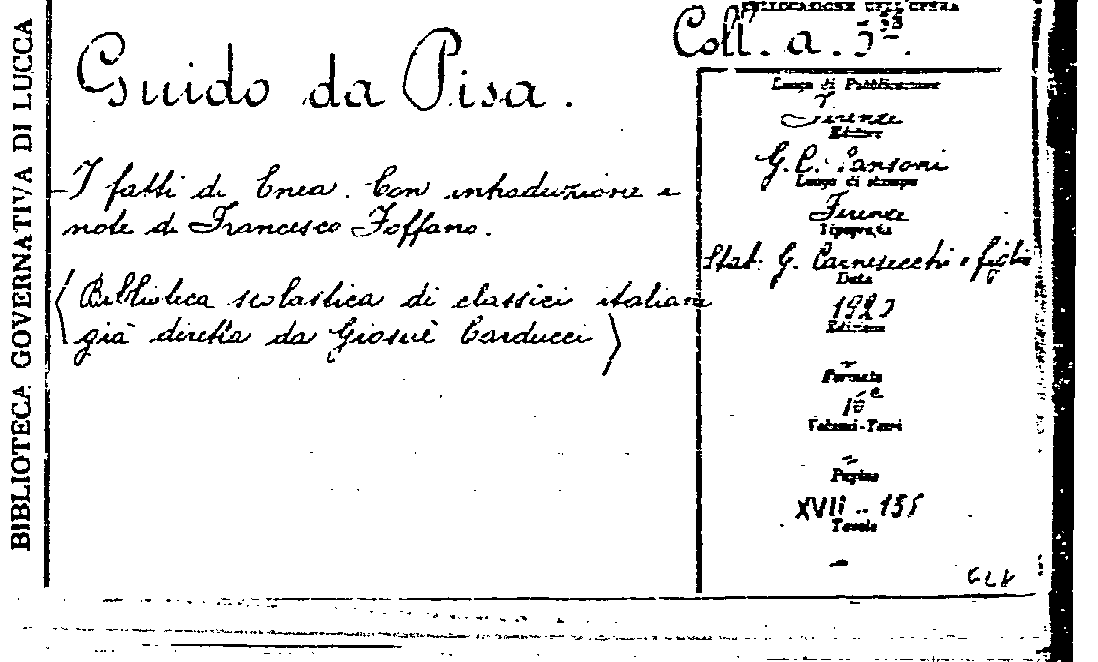 BIBLIOTECA GOVERNATIVA DI LUCCA
COLLOCAZIONE DELL'OPERA
Coll. a.
Guido da Pisa.
I fatti di Enea. Con introduzione e
note di Francesco Foffano.
(Biblioteca scolastica di classici italiani
già diretta da Giosuè Carducci)
Luogo di Pubblicazione
Firenze
Editore
G. C. Sansoni
Luogo di stampa
Firenze
Tipografia
Stab. G. Carnesecchi e figli
Data
Edizione
-
Formato
16°
Volumi-Tomi
-
Pagine
XVII -
Tavole
-